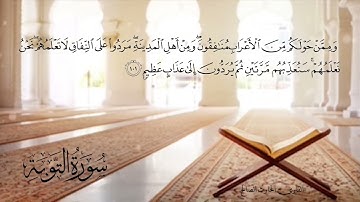 وَمِمَّنْ حَوْلَكُم مِّنَ الْأَعْرَابِ مُنَافِقُونَ ۖ وَمِنْ أَهْلِ الْمَدِينَةِ ۖ مَرَدُوا عَلَى النِّفَاقِ لَا تَعْلَمُهُمْ ۖ نَحْنُ
نَعْلَمُهُمْ ۚ سَنُعَذِّبُهُم مَّرَّتَيْنِ ثُمَّ يُرَدُّونَ إِلَىٰ عَذَابٍ عَظِيمٍ ١٠١
سورة التوبة